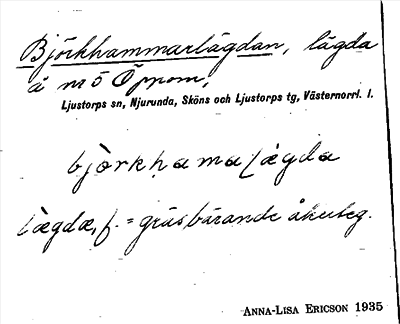 Björkhammarlägdan, lägda
å n:o 5 Öppom,
Ljustorps sn, Njurunda, Sköns och Ljustorps tg, Västernorrl. l.
bjòrkhamaLægda
Lægdæ, f. = gräsbärande åkerteg.
ANNA-LISA ERICSON 1935